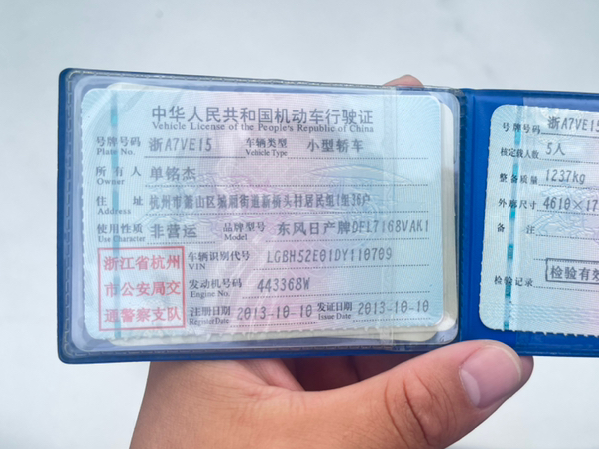 中华人民共和国机动车行驶证
Vehicle License of the People's Republic of China
号牌号码 浙A7VE15 车辆类型 小型轿车
Plate No. Vehicle Type
所有人 单铭杰
Owner
住址 杭州市萧山区城厢街道新桥头村居民组1组36户
Address
使用性质 非营运 品牌型号 东风日产牌DFL7168VAK1
Use Character Model
浙江省杭州
市公安局交
通警察支队
车辆识别代号 LGBH52E01DY110709
VIN
发动机号码 443368W
Engine No.
注册日期 2013-10-10 发证日期 2013-10-10
Register Date Issue Date
号牌号码 浙A7VE1
核定载人数 5人
整备质量 1237kg
外廓尺寸 4610×17
备注
检验记录 检验有效